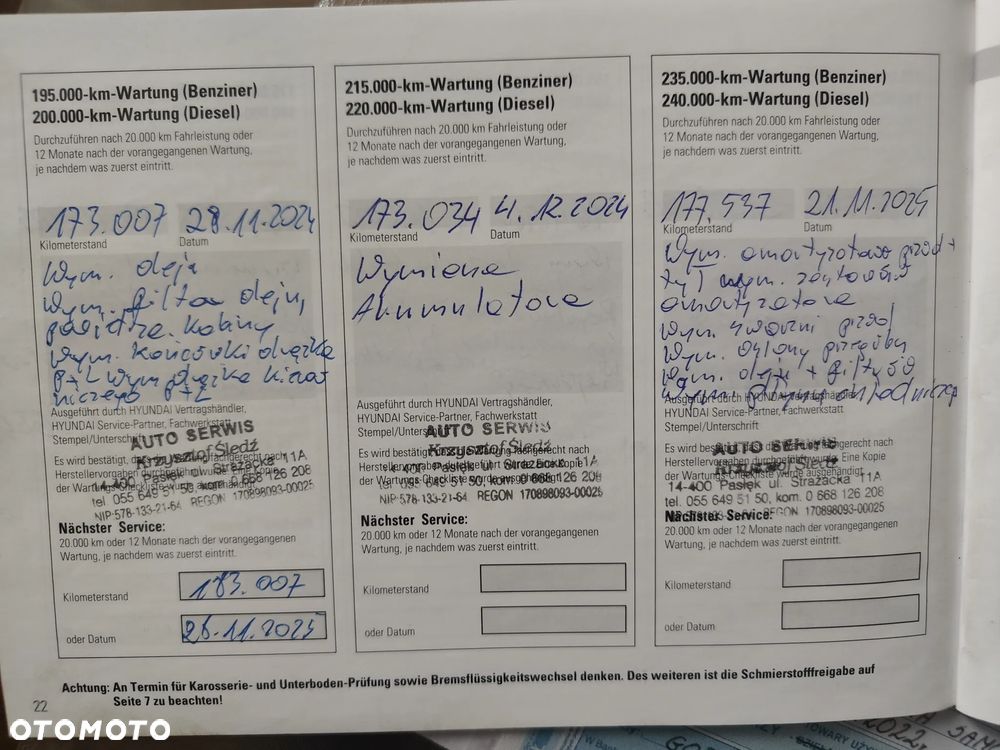 195.000-km-Wartung (Benziner)
200.000-km-Wartung (Diesel)
Durchzuführen nach 20.000 km Fahrleistung oder
12 Monate nach der vorangegangenen Wartung,
je nachdem was zuerst eintritt.
173.007 28.11.2024
Kilometerstand Datum
Wym. oleju
Wym. filtra oleju,
powietrza. kabiny
Wym. końcówki drążka
P+L Wym drążka kierow
niczego P+L
Ausgeführt durch HYUNDAI Vertragshändler,
HYUNDAI Service-Partner, Fachwerkstatt
Stempel/Unterschrift
AUTO SERWIS
Krzysztof Śledź
14-400 Pasłęk ul. Strażacka 11A
tel. 055 649 51 50, kom. 0 668 126 208
NIP-578-133-21-64 REGON 170898093-00025
Es wird bestätigt, dass die
Herstellervorgaben durchgeführt wurde. Eine Kopie
der Wartungs-Checkliste wurde ausgehändigt
Nächster Service:
20.000 km oder 12 Monate nach der vorangegangenen
Wartung, je nachdem was zuerst eintritt.
Kilometerstand 183.007
oder Datum 28.11.2025
215.000-km-Wartung (Benziner)
220.000-km-Wartung (Diesel)
Durchzuführen nach 20.000 km Fahrleistung oder
12 Monate nach der vorangegangenen Wartung,
je nachdem was zuerst eintritt.
173.034 4.12.2024
Kilometerstand Datum
Wymiana
Akumulatora
Ausgeführt durch HYUNDAI Vertragshändler,
HYUNDAI Service-Partner, Fachwerkstatt
Stempel/Unterschrift
AUTO SERWIS
Krzysztof Śledź
14-400 Pasłęk ul. Strażacka 11A
tel. 055 649 51 50, kom. 0 668 126 208
NIP-578-133-21-64 REGON 170898093-00025
Nächster Service:
20.000 km oder 12 Monate nach der vorangegangenen
Wartung, je nachdem was zuerst eintritt.
Kilometerstand
oder Datum
235.000-km-Wartung (Benziner)
240.000-km-Wartung (Diesel)
Durchzuführen nach 20.000 km Fahrleistung oder
12 Monate nach der vorangegangenen Wartung,
je nachdem was zuerst eintritt.
177.537 21.11.2025
Kilometerstand Datum
Wym. amortyzatorów przód +
tył wym.
amortyzatora
Wym. sworzni przód
Wym. osłony przegubu
Wym. oleju + filtrów
Wym. płynu chłodniczego
Ausgeführt durch HYUNDAI Vertragshändler,
HYUNDAI Service-Partner, Fachwerkstatt
Stempel/Unterschrift
AUTO SERWIS
Krzysztof Śledź
14-400 Pasłęk ul. Strażacka 11A
tel. 055 649 51 50, kom. 0 668 126 208
REGON 170898093-00025
Nächster Service:
20.000 km oder 12 Monate nach der vorangegangenen
Wartung, je nachdem was zuerst eintritt.
Kilometerstand
oder Datum
Achtung: An Termin für Karosserie- und Unterboden-Prüfung sowie Bremsflüssigkeitswechsel denken. Des weiteren ist die Schmierstofffreigabe auf
Seite 7 zu beachten!
22
OTOMOTO